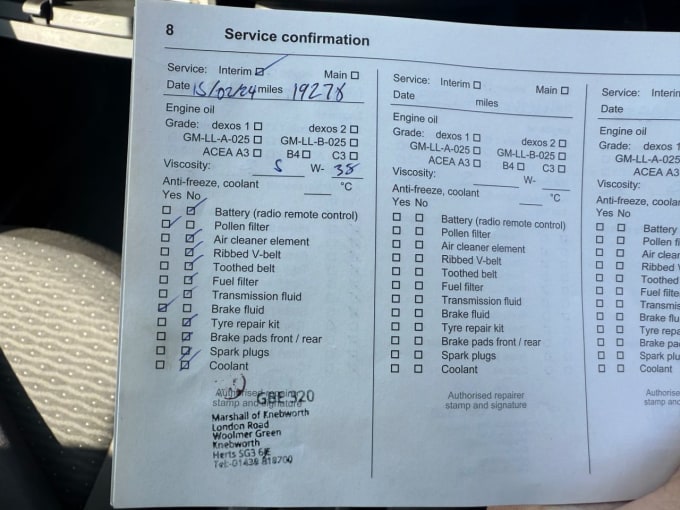 8 Service confirmation
Service: Interim Main
Date 15/02/24 miles 19278
Engine oil
Grade: dexos 1 dexos 2
GM-LL-A-025 GM-LL-B-025
ACEA A3 B4 C3
Viscosity: 5 W-
Anti-freeze, coolant °C
Yes No
Battery (radio remote control)
Pollen filter
Air cleaner element
Ribbed V-belt
Toothed belt
Fuel filter
Transmission fluid
Brake fluid
Tyre repair kit
Brake pads front / rear
Spark plugs
Coolant
Authorised repairer
stamp and signature
GBE 320
Marshall of Knebworth
London Road
Woolmer Green
Knebworth
Herts SG3
Tel:-01438
Service: Interim Main
Date miles
Engine oil
Grade: dexos 1 dexos 2
GM-LL-A-025 GM-LL-B-025
ACEA A3 B4 C3
Viscosity: W-
Anti-freeze, coolant °C
Yes No
Battery (radio remote control)
Pollen filter
Air cleaner element
Ribbed V-belt
Toothed belt
Fuel filter
Transmission fluid
Brake fluid
Tyre repair kit
Brake pads front / rear
Spark plugs
Coolant
Authorised repairer
stamp and signature
Service: Interim
Date
Engine oil
Grade: dexos 1
GM-LL-A-025
ACEA A3
Viscosity:
Anti-freeze, coolant
Yes No
Battery
Pollen fi
Air clean
Ribbed V
Toothed
Fuel filte
Transmis
Brake flu
Tyre repa
Brake pa
Spark plu
Coolant
Authorise
stamp and